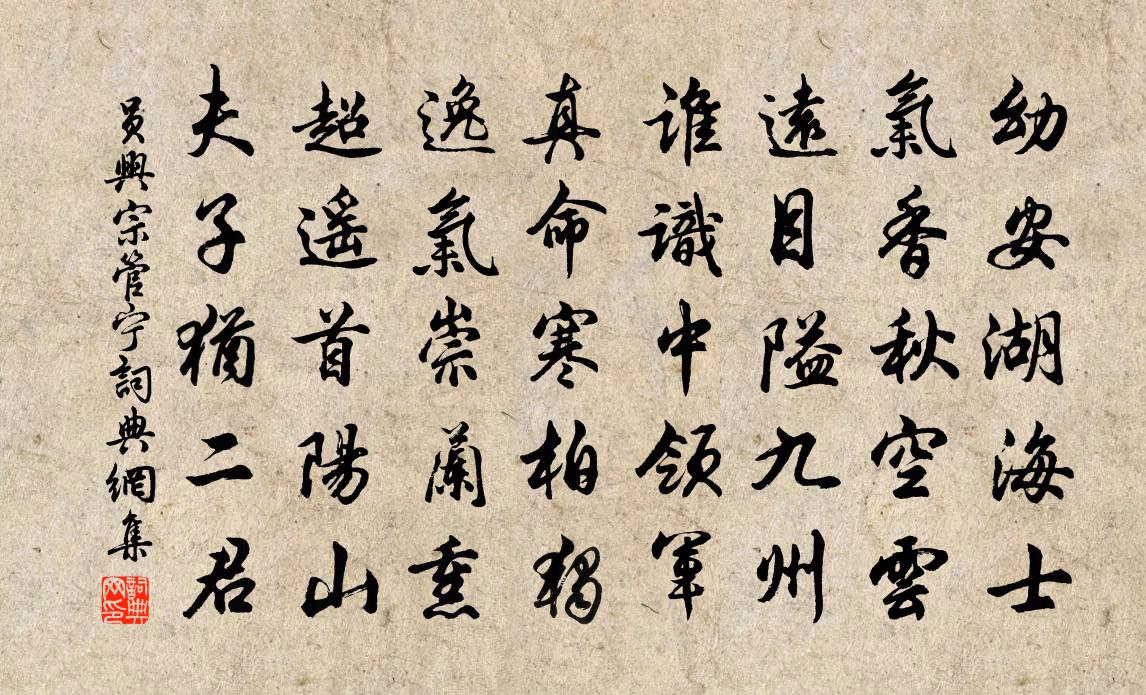 幼安湖海士
氣香秋空雲
遠目隘九州
誰識中領軍
真命寒柏獨
逸氣崇蘭熏
超遥首陽山
夫子猶二君
員興宗管宁詞典網集
詞典網印